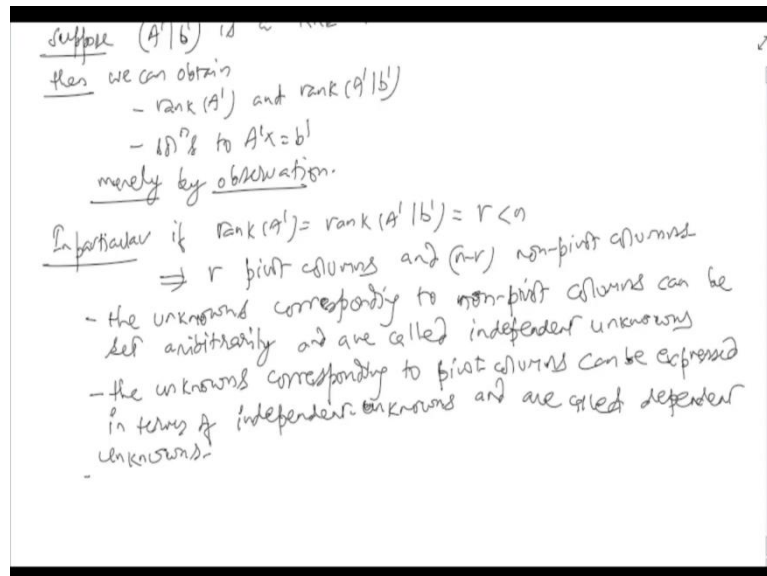 Suppose (A'|b') is a
then we can obtain
- rank(A') and rank(A'|b')
- solⁿs to A'x = b'
merely by observation.
In particular if rank(A') = rank(A'|b') = r < n
⇒ r pivot columns and (n-r) non-pivot columns
- the unknowns corresponding to non-pivot columns can be
set aribitrarily and are called independent unknowns
- the unknowns corresponding to pivot columns can be expressed
in terms of independent unknowns and are called dependent
unknowns.
-